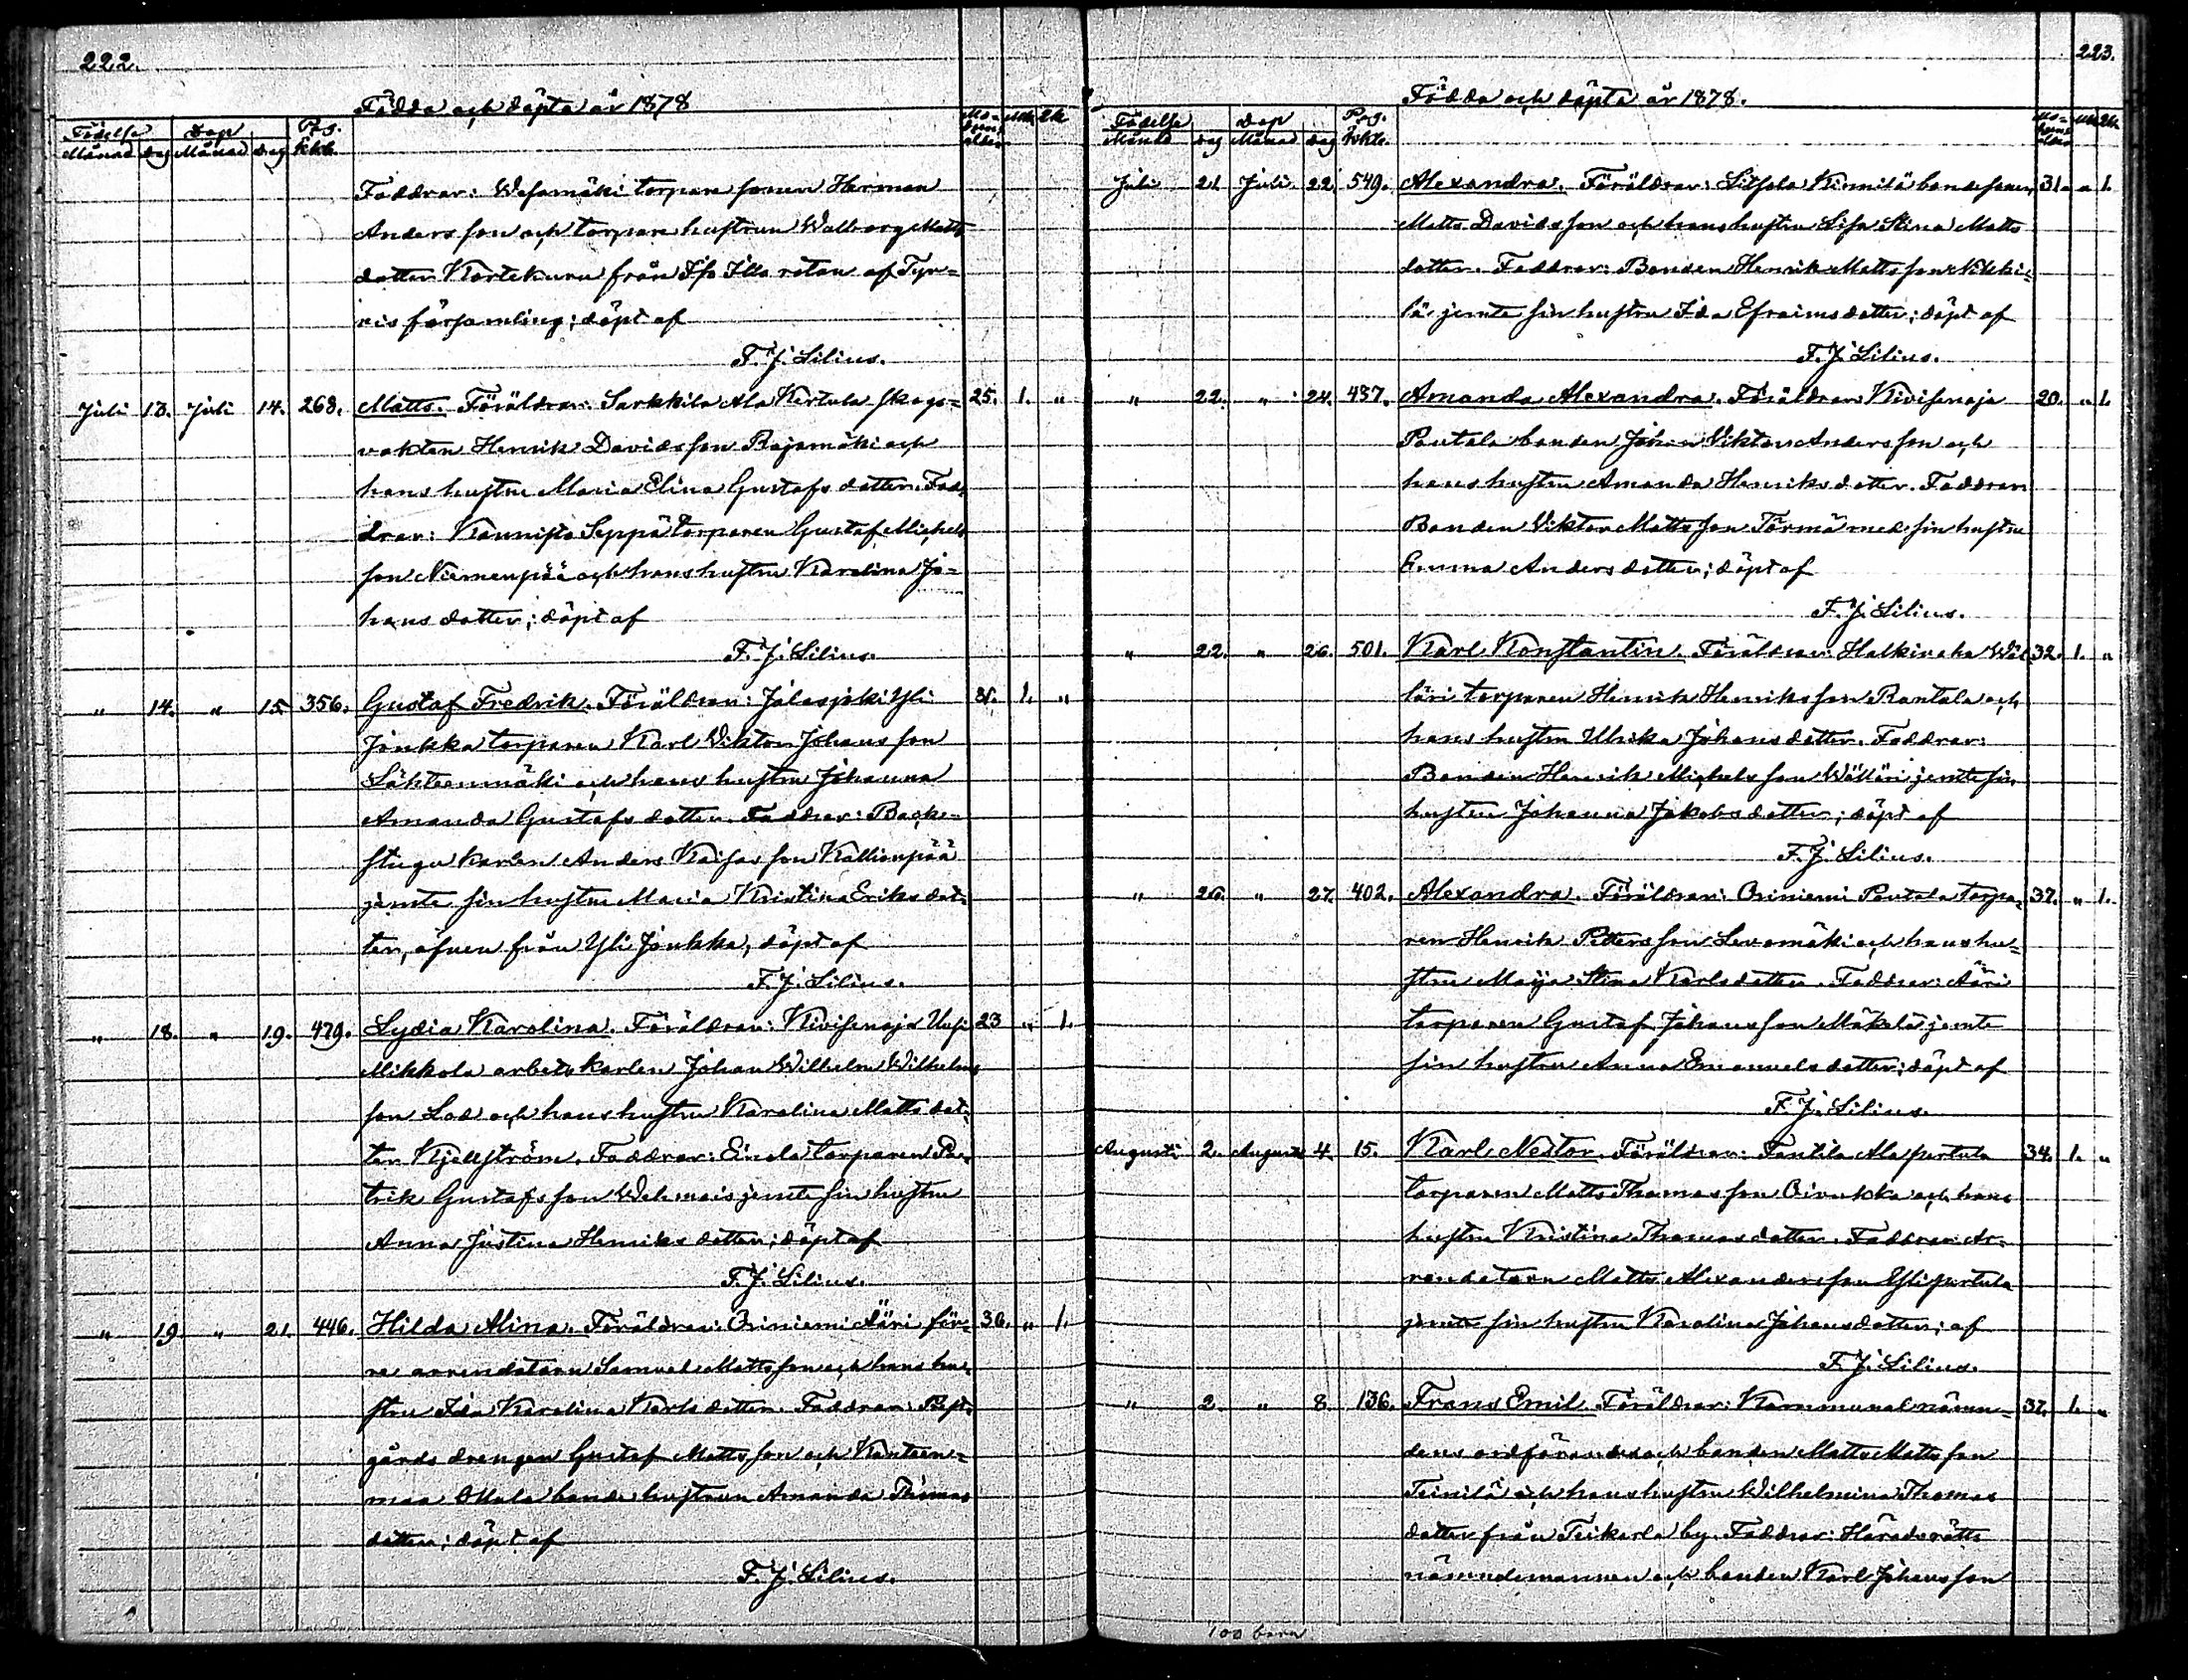 222.
Födda och döpta år 1878
Födelse Dop Pag. Mo- Mk Qk
Månad dag Månad dag kkb. derns ålder
Faddrar: Wesamäki torpare sonen Herman
Andersson och torpare hustrun Walborg Matts
dotter Kortekuru från Iso Illo rotan af Tyr=
vis församling; döpt af
F. J. Lilius.
Juli 13. Juli 14. 268. Matts. Föräldrar: Sarkkila Ala Kertula skogs= 25. 1. "
vakten Henrik Davidsson Rajamäki och
hans hustru Maria Elina Gustafsdotter. Fad=
drar: Kannisto Seppä torparen Gustaf Michels
son Niemenpää och hans hustru Karolina Jo=
hansdotter; döpt af
F. J. Lilius.
" 14. " 15. 356. Gustaf Fredrik. Föräldrar: Jalasjoki Yli 31. 1. "
Jonkka torparen Karl Viktor Johansson
Lähteenmäki och hans hustru Johanna
Amanda Gustafsdotter. Faddrar: Back=
stugu karlen Anders Kaisasson Kallionpää
jemte sin hustru Maria Kristina Eriksdot=
ter, äfven från Yli Jonkka; döpt af
F. J. Lilius.
" 18. " 19. 479. Lydia Karolina. Föräldrar: Kivisenoja Uusi 23 " 1.
Mikkola arbets karlen Johan Wilhelm Wilhelms
son Lod och hans hustru Karolina Mattsdot=
ter Kjellström. Faddrar: Einola torparen Pa=
trik Gustafsson Wehmais jemte sin hustru
Anna Justina Henriksdotter; döpt af
F. J. Lilius.
" 19 " 21. 446. Hilda Alina. Föräldrar: Oriniemi Ääri för= 36. " 1.
re arrendatorn Samuel Mattsson och hans hu=
stru Ida Karolina Karlsdotter. Faddrar: Prest=
gårds drengen Gustaf Mattsson och Kanteen=
maa Ollala bonde hustrun Amanda Thomas
dotter; döpt af
F. J. Lilius.
223.
Födda och döpta år 1878.
Födelse Dop Pag. Mo- Mk Qk
Månad dag Månad dag kkb. derns ålder
Juli 21. Juli 22. 549. Alexandra. Föräldrar: Liitsola Kinnilä bondesonen 31. " 1.
Matts Davidsson och hans hustru Lisa Stina Matts
dotter. Faddrar: Bonden Henrik Mattsson Nikki=
lä jemte sin hustru Ida Efraimsdotter; döpt af
F. J. Lilius.
" 22. " 24. 437. Amanda Alexandra. Föräldrar: Kivisenoja 20. " 1.
Pautala bonden Johan Viktor Andersson och
hans hustru Amanda Henriksdotter. Faddrar:
Bonden Viktor Mattsson Törmä med sin hustru
Emma Andersdotter; döpt af
F. J. Lilius.
" 22. " 26. 501. Karl Konstantin. Föräldrar: Halkivaha Wäl 32. 1. "
läri torparen Henrik Henriksson Rantala och
hans hustru Ulrika Johansdotter. Faddrar:
Bonden Henrik Michelsson Wälläri jemte sin
hustru Johanna Jakobsdotter; döpt af
F. J. Lilius.
" 26. " 27. 402. Alexandra. Föräldrar: Oriniemi Pautala torpa= 37. " 1.
ren Henrik Pettersson Levomäki och hans hu=
stru Maja Stina Karlsdotter. Faddrar: Ääri
torparen Gustaf Johansson Mäkelä jemte
sin hustru Anna Emanuelsdotter; döpt af
F. J. Lilius.
Augusti 2. Augusti 4. 15. Karl Nestor. Föräldrar: Fantila Alapertula 34. 1. "
torparen Matts Thomasson Oivukka och hans
hustru Kristina Thomasdotter. Faddrar: Ar=
rendatorn Matts Alexandersson Ylipertula
jemte sin hustru Karolina Johansdotter; af
F. J. Lilius.
" 2. " 8. 136. Frans Emil. Föräldrar: Kommunal nämn= 37. 1. "
dens ordförande och bonden Matts Mattsson
Teinilä och hans hustru Wilhelmina Thomas
dotter från Teikarla by. Faddrar: Häradsrätts
nämndemannen och bonden Karl Johansson
100 barn